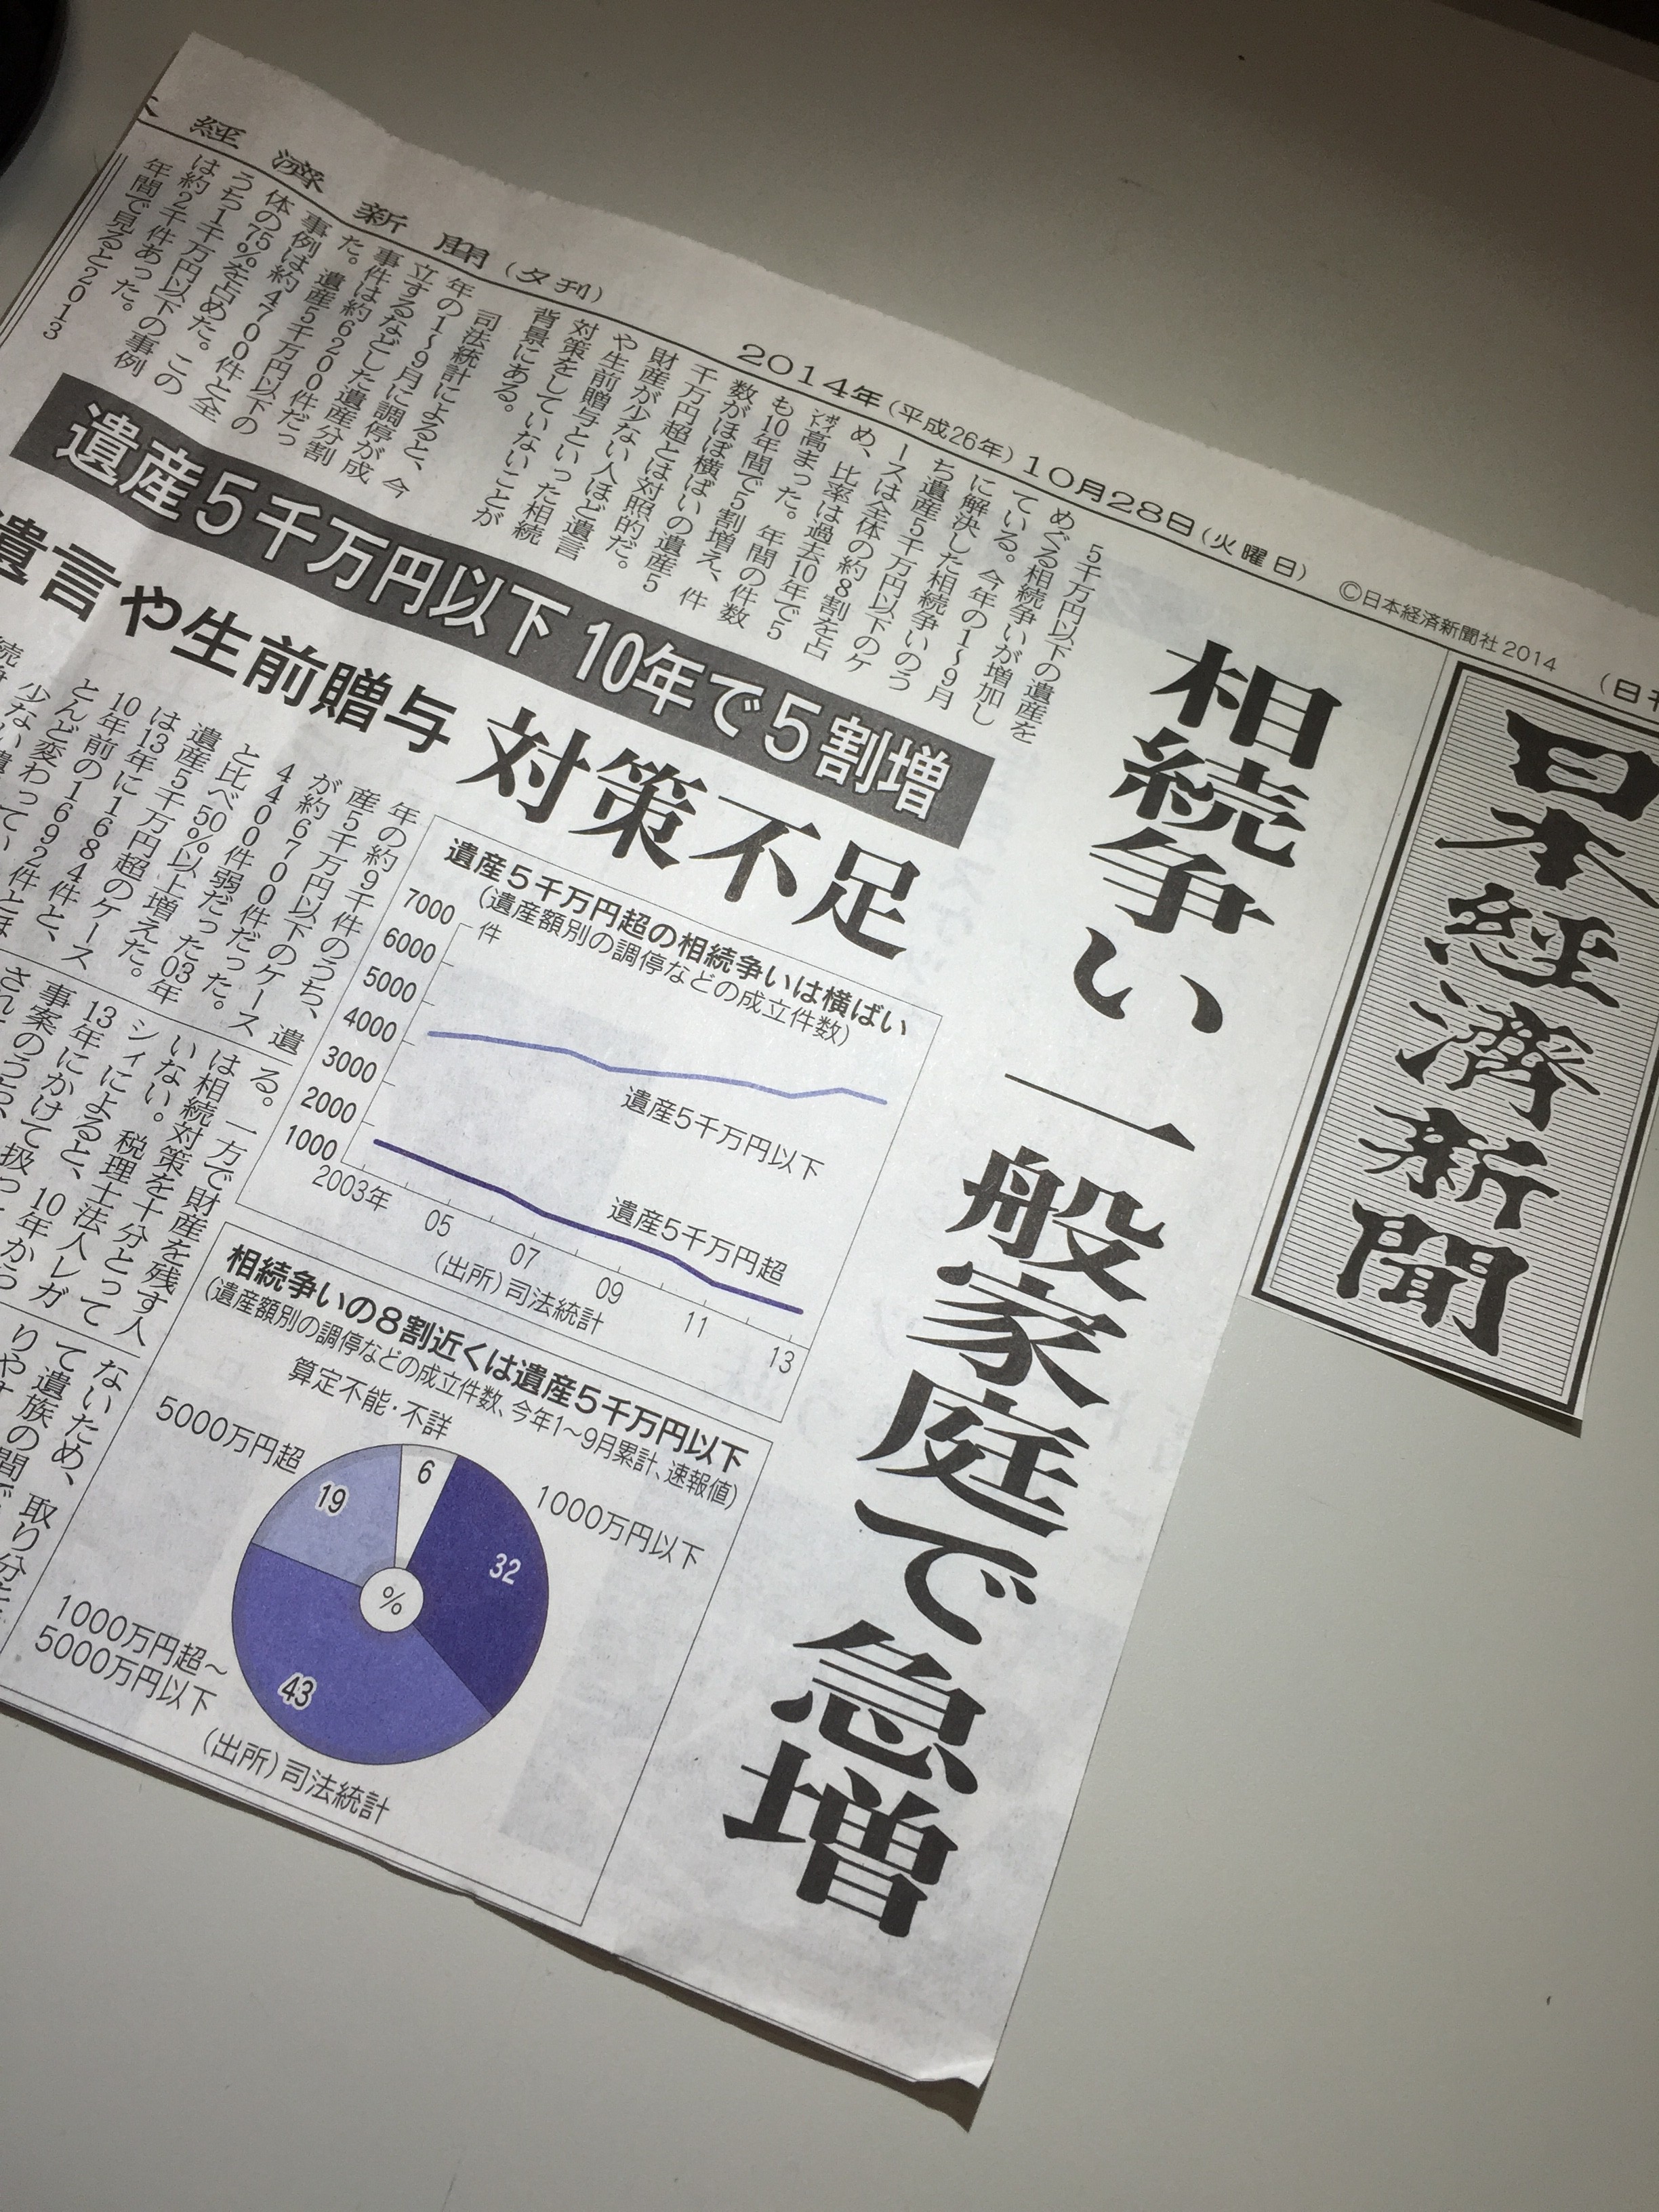 経済新聞(夕刊)
2014年(平成26年)10月28日(火曜日)
©日本経済新聞社 2014
(日刊
日本経済新聞
相続争い 一般家庭で急増
遺産5千万円以下 10年で5割増
遺言や生前贈与 対策不足
5千万円以下の遺産を
めぐる相続争いが増加し
ている。今年の1〜9月
に解決した相続争いのう
ち遺産5千万円以下のケ
ースは全体の約8割を占
め、比率は過去10年で5
ポイント高まった。年間の件数
も10年間で5割増え、件
数がほぼ横ばいの遺産5
千万円超とは対照的だ。
財産が少ない人ほど遺言
や生前贈与といった相続
対策をしていないことが
背景にある。
司法統計によると、今
年の1〜9月に調停が成
立するなどした遺産分割
事件は約6200件だっ
た。遺産5千万円以下の
事例は約4700件と全
体の75%を占めた。この
うち1千万円以下の事例
は約2千件あった。
年間で見ると2013
年の約9千件のうち、遺
産5千万円以下のケース
が約6700件だった。
4400件弱だった03年
と比べ50%以上増えた。
遺産5千万円超のケース
は13年に1692件と、
10年前の1684件とほ
とんど変わって
少ない遺
る。
一方で財産を残す人
は相続対策を十分とって
いない。税理士法人レガ
シィによると、10年から
13年にかけて扱っ
事案のうち、
され
ないため、取り分を
て遺族の間で
りやす
遺産5千万円超の相続争いは横ばい
(遺産額別の調停などの成立件数)
7000
件
6000
5000
4000
3000
2000
1000
遺産5千万円以下
遺産5千万円超
2003年 05 07 09 11 13
(出所)司法統計
相続争いの8割近くは遺産5千万円以下
(遺産額別の調停などの成立件数、今年1〜9月累計、速報値)
算定不能・不詳
6
5000万円超
19
1000万円以下
32
%
1000万円超〜
5000万円以下
43
(出所)司法統計